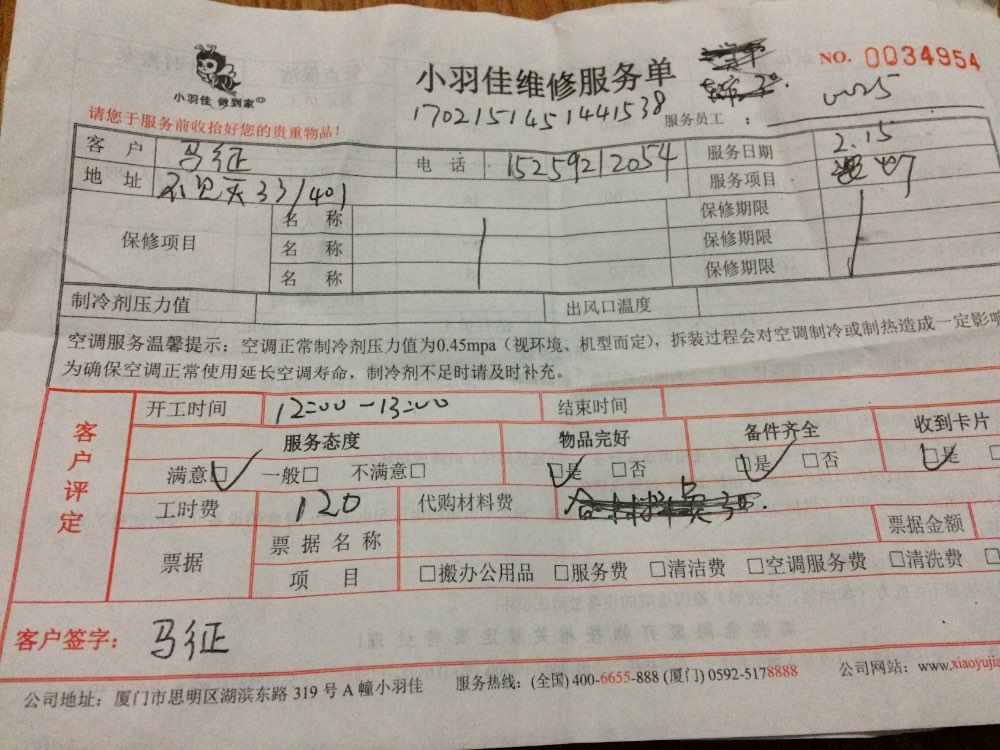 小羽佳维修服务单
NO. 0034954
小羽佳 做到家
170215145144 1538
服务员工 ： 0025
请您于服务前收拾好您的贵重物品！
客 户 马征 电 话 15259212054 服务日期 2.15
地 址 不见天33/401 服务项目
保修项目 名 称 保修期限
名 称 保修期限
名 称 保修期限
制冷剂压力值 出风口温度
空调服务温馨提示：空调正常制冷剂压力值为0.45mpa（视环境、机型而定），拆装过程会对空调制冷或制热造成一定影响
为确保空调正常使用延长空调寿命，制冷剂不足时请及时补充。
客户评定
开工时间 12:00-13:00 结束时间
服务态度 物品完好 备件齐全 收到卡片
满意☑ 一般□ 不满意□ ☑是 □否 ☑是 □否 ☑是
工时费 120 代购材料费
票据 票据名称 票据金额
项 目 □搬办公用品 □服务费 □清洁费 □空调服务费 □清洗费 □
客户签字： 马征
公司地址：厦门市思明区湖滨东路 319 号 A 幢小羽佳 服务热线：(全国) 400-6655-888 (厦门) 0592-5178888 公司网站：www.xiaoyujia